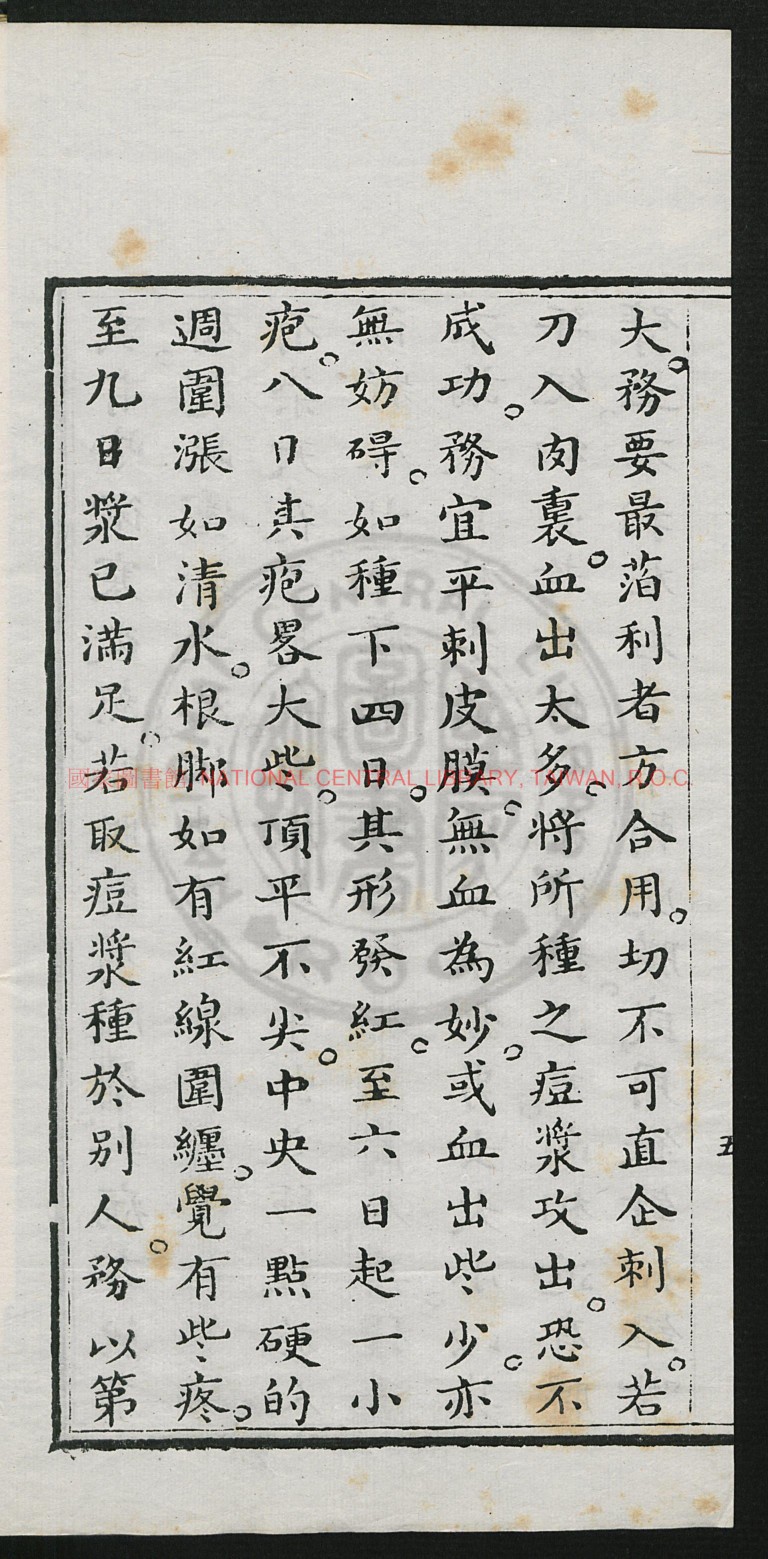 大。務要最箔利者方合用。切不可直企刺入。若
刀入肉裏。血出太多。將所種之痘漿攻出。恐不
成功。務宜平刺皮膜。無血為妙。或血出些少。亦
無妨碍。如種下四日。其形發紅。至六日起一小
疱。八日其疱畧大些。頂平不尖。中央一點硬的
週圍漲如清水。根脚如有紅線圍纏。覺有些疼。
至九日漿已滿足。若取痘漿種於別人。務以第
五
國家圖書館 NATIONAL CENTRAL LIBRARY, TAIWAN, R.O.C.